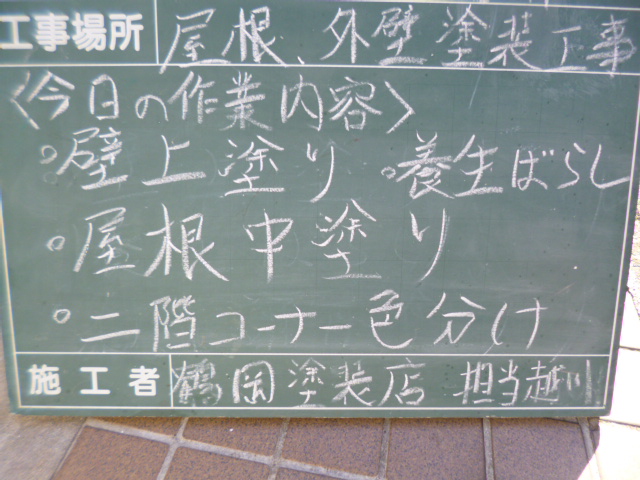 工事場所 屋根、外壁塗装工事
〈今日の作業内容〉
。壁上塗り 。養生ばらし
。屋根中塗り
。二階コーナー色分け
施工者 鶴岡塗装店 担当越川